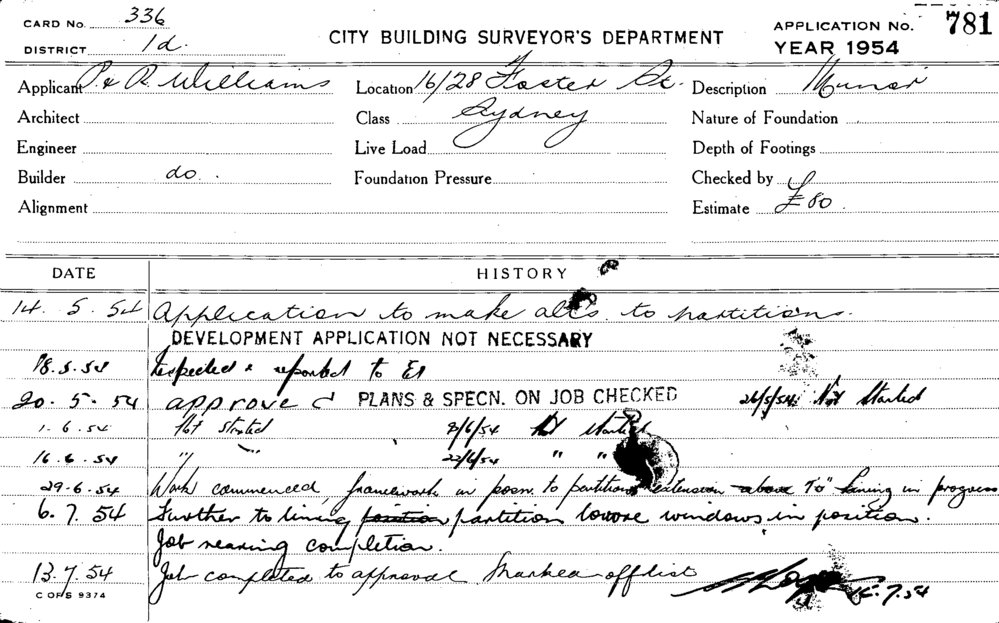 CARD No. 336
DISTRICT 1d.
CITY BUILDING SURVEYOR'S DEPARTMENT
APPLICATION No. 781
YEAR 1954
Applicant P. & R. Williams
Location 16/28 Foster St.
Description Minor
Architect
Class Sydney
Nature of Foundation
Engineer
Live Load
Depth of Footings
Builder do.
Foundation Pressure
Checked by
Alignment
Estimate £80.
DATE HISTORY
14. 5. 54 Application to make alts. to partitions.
DEVELOPMENT APPLICATION NOT NECESSARY
18.5.54 Inspected & reported to
20. 5. 54 approved PLANS & SPECN. ON JOB CHECKED 26/5/54 Not Started
1. 6. 54 Not started 8/6/54 Not Started
16. 6. 54 " " 22/6/54 " "
29.6.54 Work commenced, framework in posn. to partition extension above To" lining in progress
6. 7. 54 Further to lining position partition windows in position.
Job nearing completion.
13. 7. 54 Job completed to approval Marked off list 15.7.54
C OF S 9374